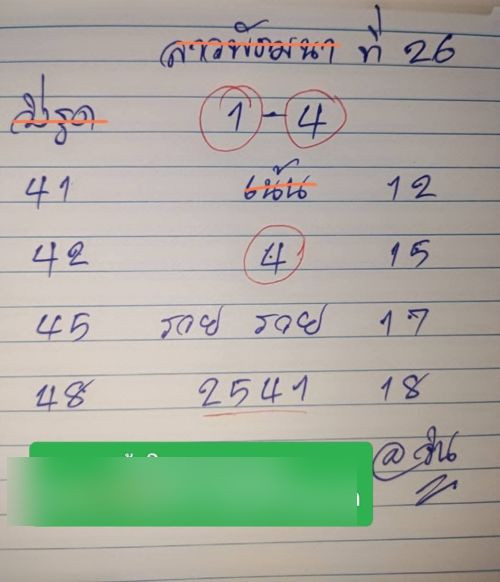 ลาวพัฒนา ที่ 26
มีรูด 1-4
41 เน้น 12
42 4 15
45 รวย รวย 17
48 2541 18